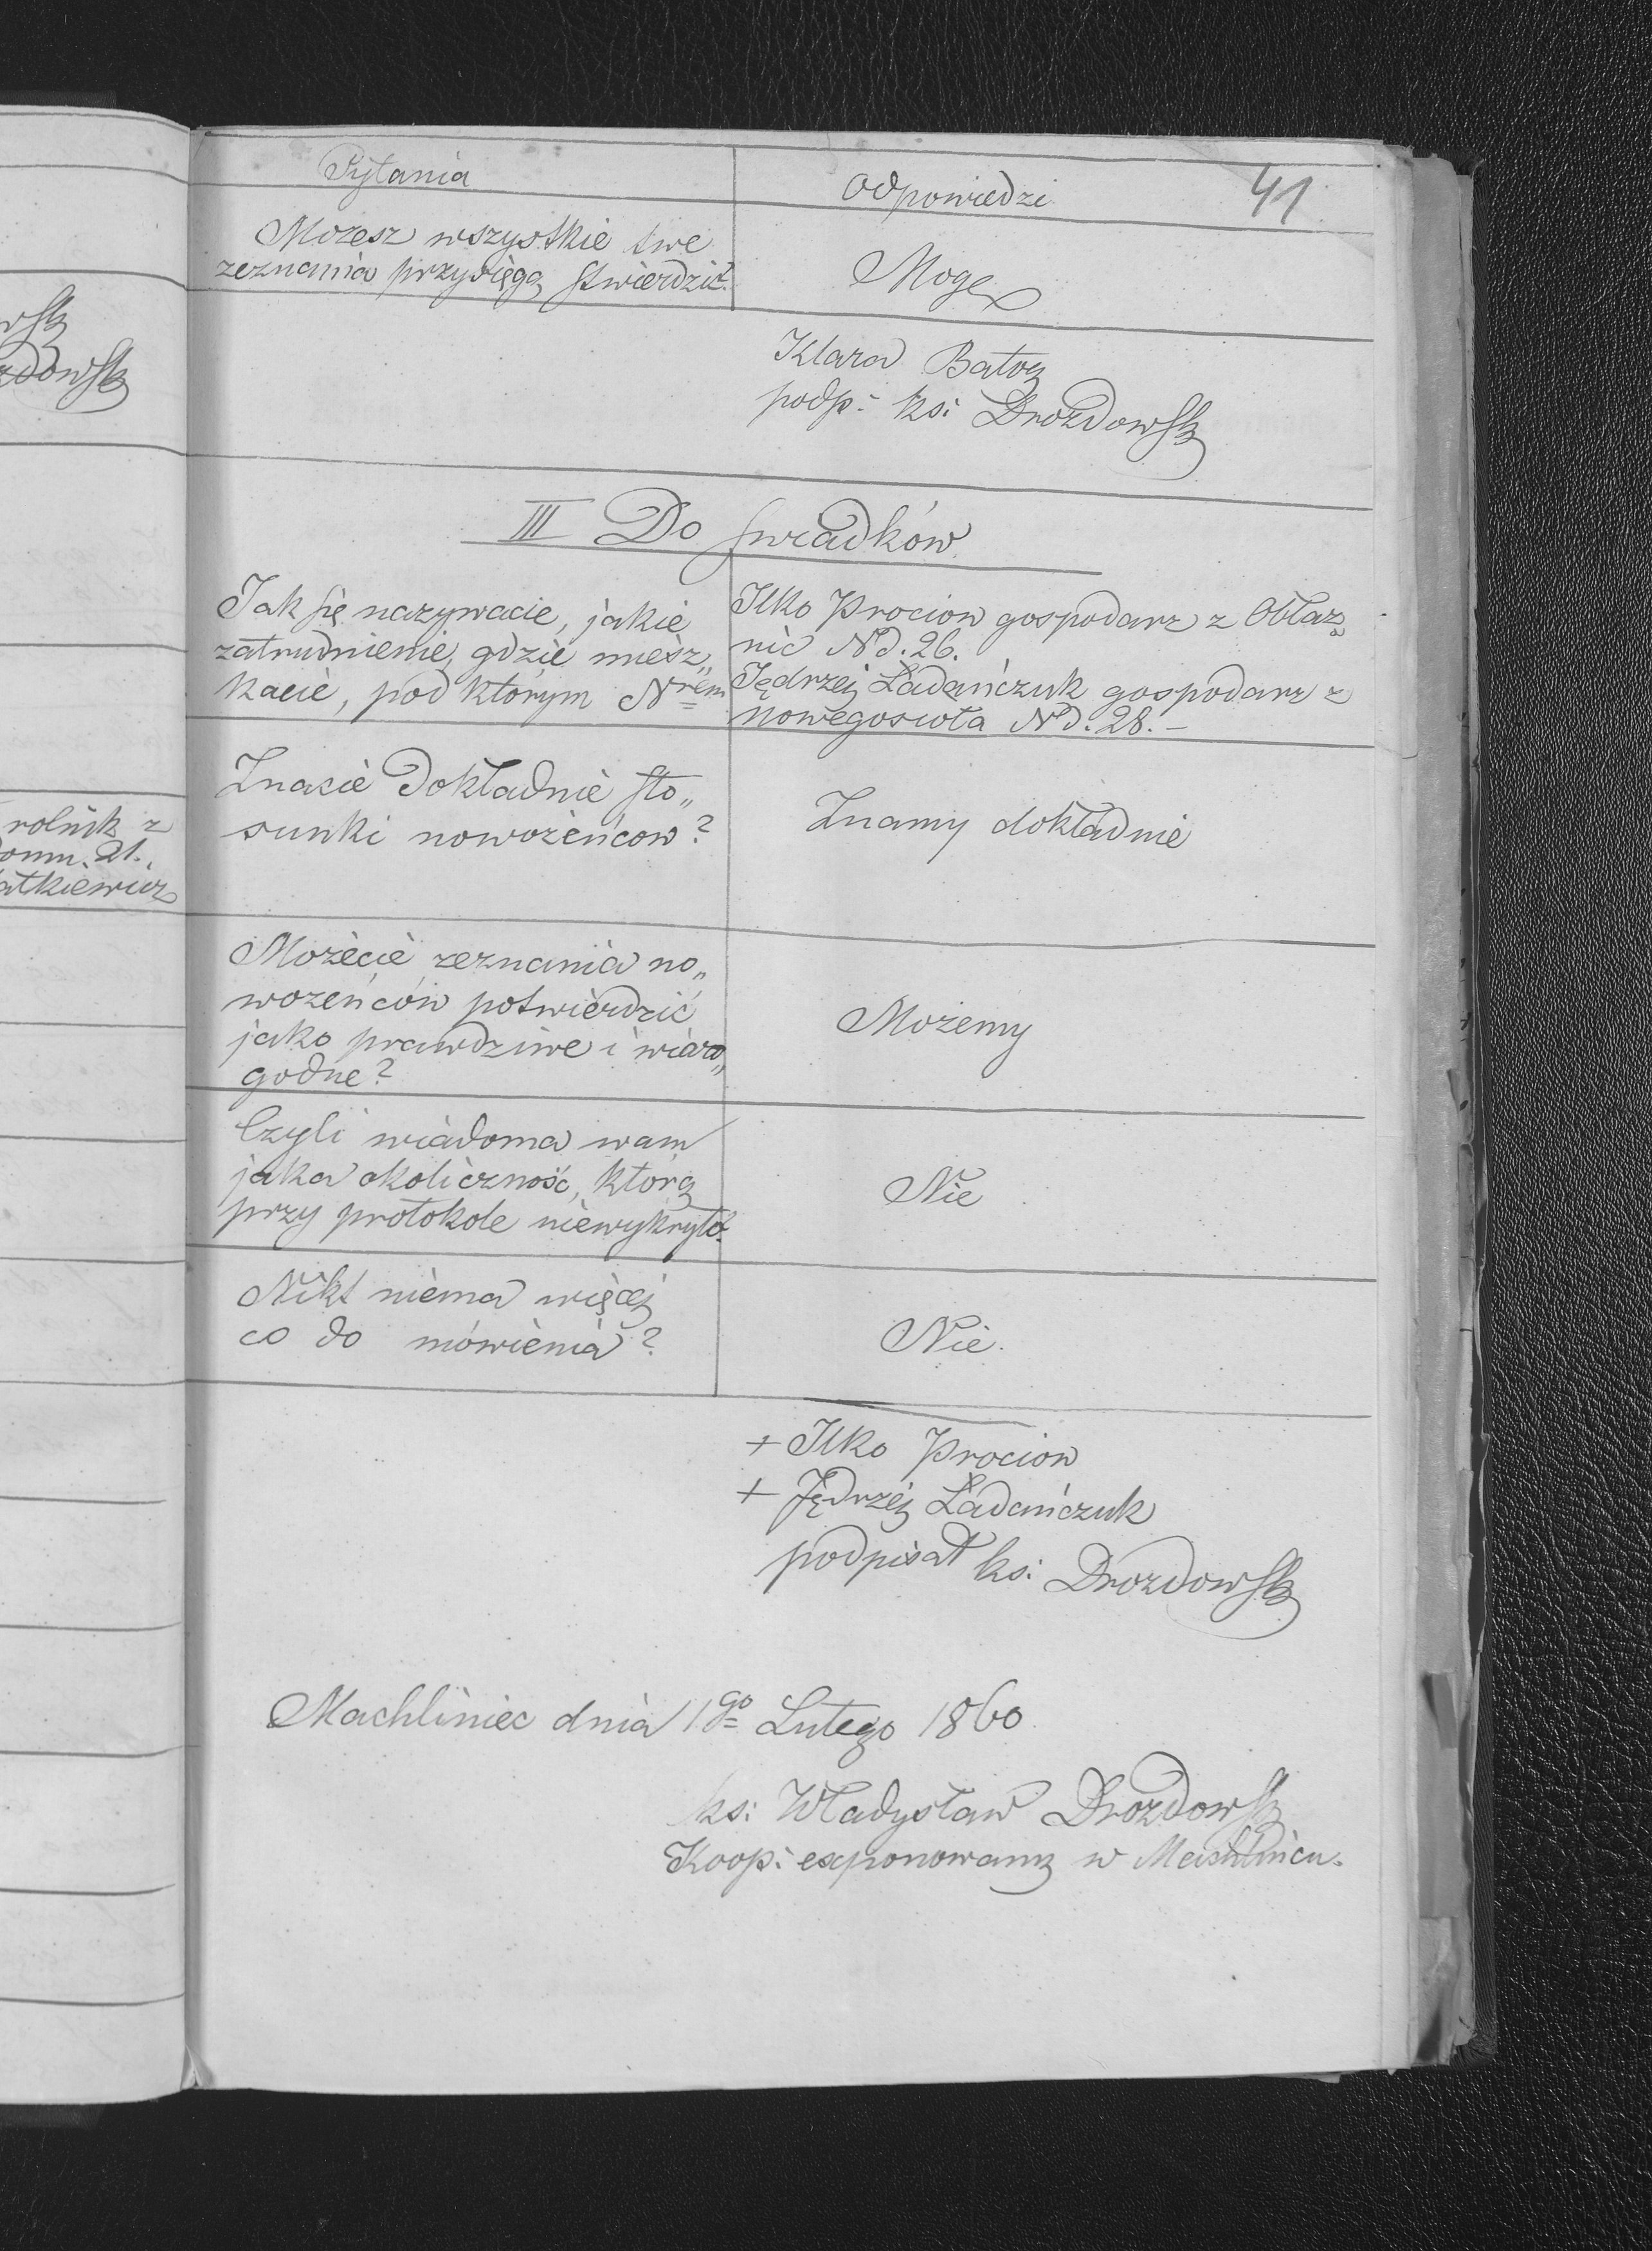 Pytania
Odpowiedzi
41
Możesz wszystkie twe
zeznania przysięgą stwierdzić?
Mogę
Klara Batog
podp: ks: Drozdowski
III Do świadków
Jak się nazywacie, jakie
zatrudnienie, gdzie miesz„
kacie, pod którym Nrem
Ilko Prociow gospodarz z Obłaz„
nic Nd. 26.
Jędrzej Ładańczuk gospodarz z
Nowegosioła Nd. 28. –
Znacie dokładnie sto„
sunki nowożeńcow?
Znamy dokładnie
Możecie zeznania no„
wożeńców potwierdzić
jako prawdziwe i wiaro„
godne?
Możemy
Czyli wiadoma wam
jaka okoliczność, którą
przy protokole niewykryto?
Nie
Nikt niema więcej
co do mówienia?
Nie.
+ Ilko Prociow
+ Jędrzej Ładańczuk
podpisał ks: Drozdowski
Machliniec dnia 1go Lutego 1860
ks: Władysław Drozdowski
Koop: exponowany w Machlińcu.
wski
zdowski
rolnik z
domu. 21.
atkiewicz